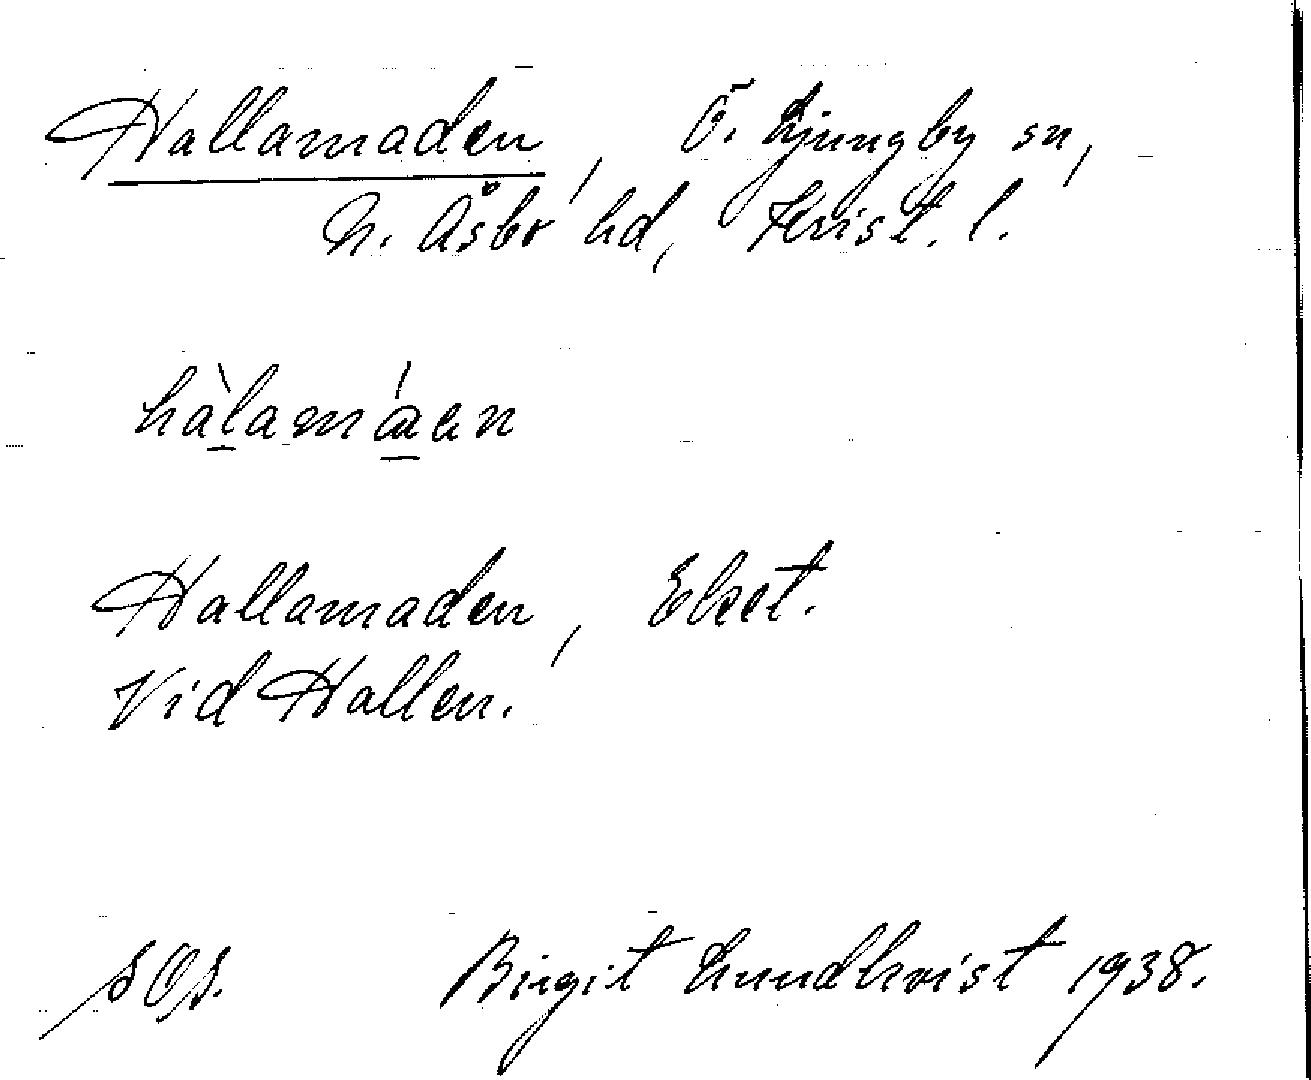 Hallamaden, Ö. Ljungby sn,
N. Åsbo hd, Krist. l.
hàlamáen
Hallamaden,
Vid Hallen.
Birgit Lundkvist 1938.